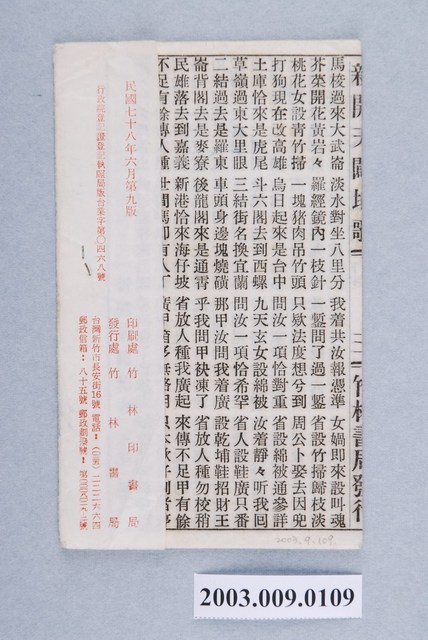 新開天闢地歌 三 竹林書局發行
馬梭過來大武崙 淡水對坐八里分 我着共汝報憑準 女媧即來設叫魂
芥菜開花黃岩々 羅經鏡內一枝針 一鏨問了過一鏨 省設竹掃歸枝淡
桃花女設青竹掃 一塊猪肉吊竹頭 只欵法度想兮到 周公卜娶去因兜
打狗現在改高雄 烏日起來是台中 問汝一項恰對重 省設綿被通參詳
土庫恰來是虎尾 斗六閣去到西螺 九天玄女設綿被 汝着靜々听我回
草嶺過東大里眼 三結街名換宜蘭 問汝一項恰希罕 省人設鞋廣只番
二結過去是羅東 車頭身邊塊燒磺 那甲汝問我着廣 設乾埔鞋招財王
崙背閣去是麥寮 後龍閣來是通霄 乎我問甲袂凍了 省放人種勿梭稍
民雄落去到嘉義 新港恰來海仔坡 省放人種我廣起 來傳不足甲有餘
不足有餘傳人種
民國七十八年六月第九版
行政院登記證登記執照局版台業字第〇四六八號
印刷處 竹林印書局
發行處 竹林書局
台灣新竹市長安街16號 電話：
郵政信箱：八十五號 郵政劃撥
2003.9.109.
2003.009.0109